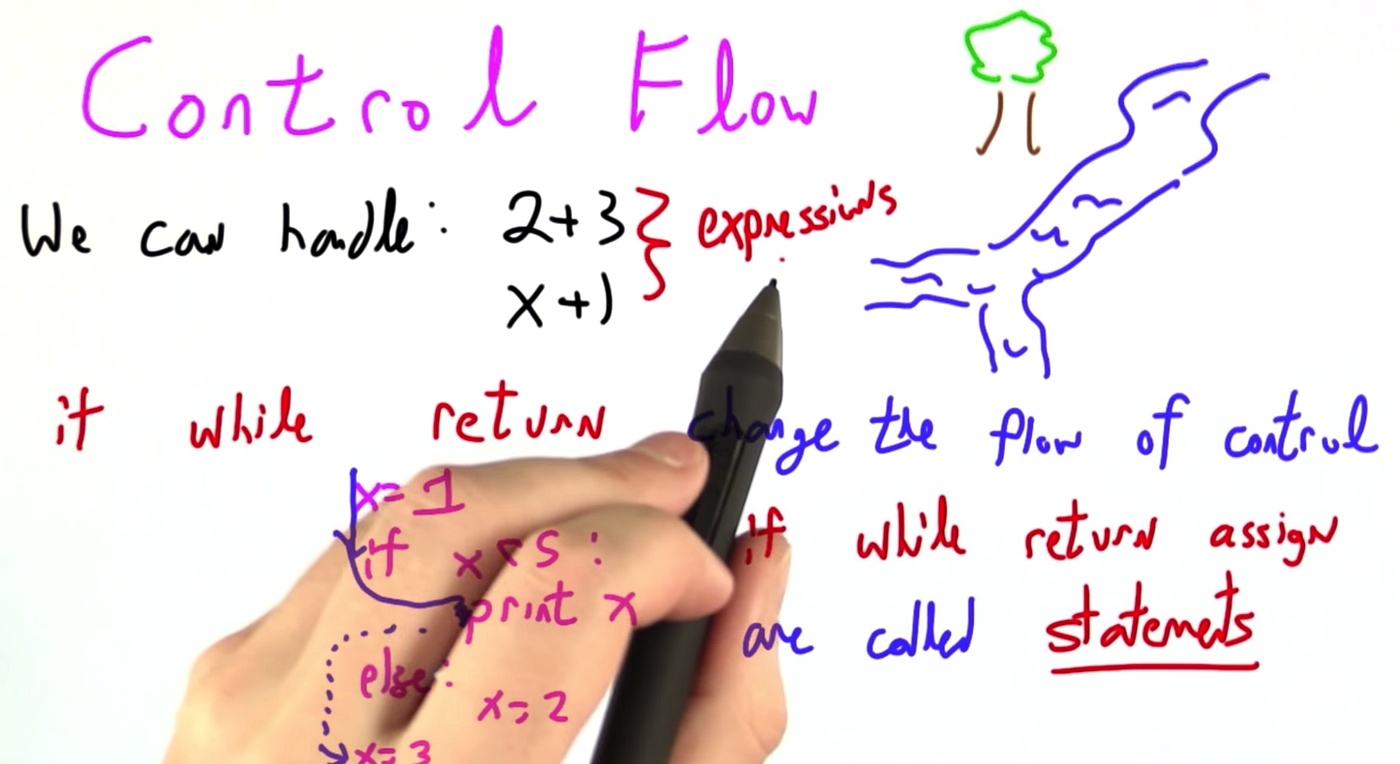 Control Flow
We can handle: 2+3 } expressions
x+1
if while return change the flow of control
x=1
if x<5:
print x
else:
x=2
x=3
if while return assign
are called statements